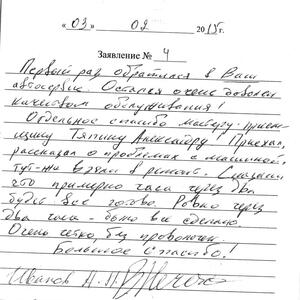 « 03 » 02 2015г.
Заявление № 4
Первый раз обратился в Ваш
автосервис. Остался очень доволен
качеством обслуживания!
Отдельное спасибо мастеру-прием-
щику Тяпину Александру! Приехал,
рассказал о проблемах с машиной,
тут-же взяли в ремонт. Сказали
что примерно часа через два
будет всё готово. Ровно через
два часа - было все сделано.
Очень четко, без проволочек!
Большое спасибо!
Иванов А.П.